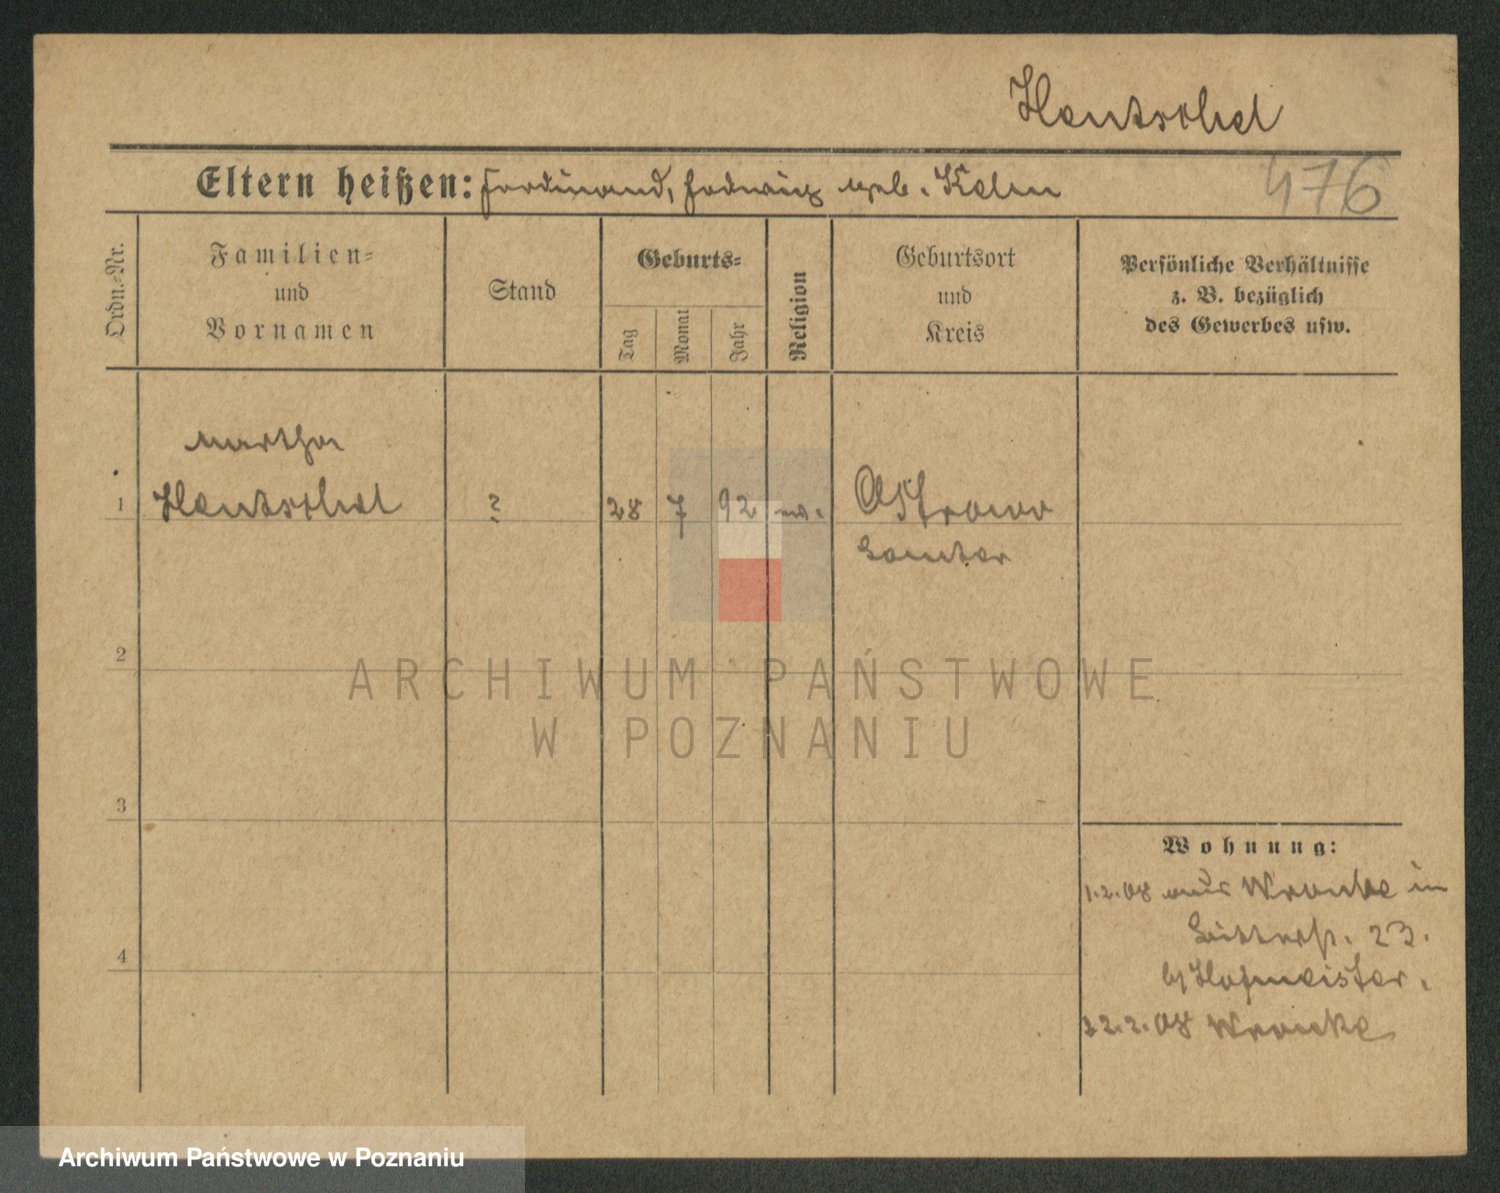 Hentschel
Eltern heißen: Ferdinand, Hedwig geb. Kelm
476
Ordn.-Nr.
Familien-
und
Vornamen
Stand
Geburts-
Tag
Monat
Jahr
Religion
Geburtsort
und
Kreis
Persönliche Verhältnisse
z. B. bezüglich
des Gewerbes usw.
Martha
1 Hentschel ? 28 7 92 ev. Ostrowo
Samter
2
ARCHIWUM PAŃSTWOWE
W POZNANIU
3
Wohnung:
1.2.08 aus Wronke in
23.
b/ Hofmeister.
4
2.08 Wronke
Archiwum Państwowe w Poznaniu